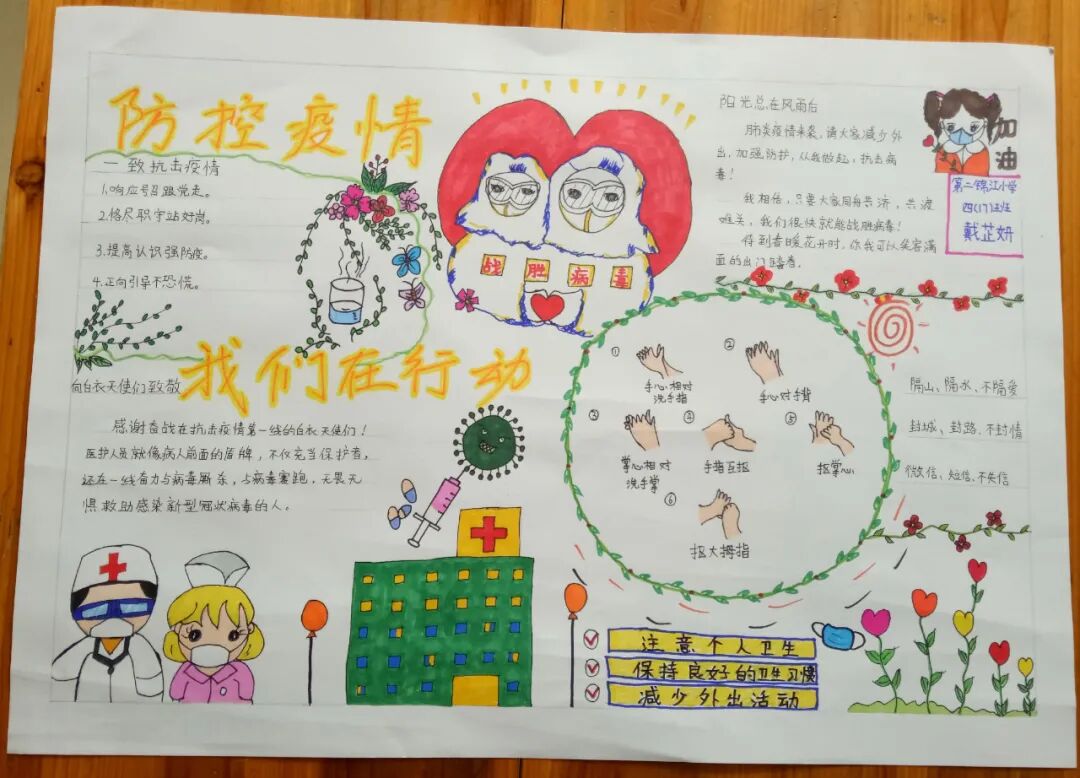 防控疫情
一致抗击疫情
1.响应号召跟党走。
2.恪尽职守站好岗。
3.提高认识强防疫。
4.正向引导不恐慌。
战胜病毒
阳光总在风雨后
肺炎疫情来袭，请大家减少外
出，加强防护，从我做起，抗击病
毒！
我相信，只要大家同舟共济，共渡
难关，我们很快就能战胜病毒！
待到春暖花开时，你我可以笑容满
面的出门踏春。
加油
第二锦江小学
四(17)班
戴芷妍
我们在行动
向白衣天使们致敬
感谢奋战在抗击疫情第一线的白衣天使们！
医护人员就像病人前面的盾牌，不仅充当保护者，
还在一线奋力与病毒厮杀，与病毒赛跑，无畏无
惧救助感染新型冠状病毒的人。
①
手心相对
洗手指
②
手心对手背
③
掌心相对
洗手掌
④
手指互抠
⑤
抠掌心
⑥
抠大拇指
隔山、隔水、不隔爱
封城、封路、不封情
微信、短信、不失信
注意个人卫生
保持良好的卫生习惯
减少外出活动